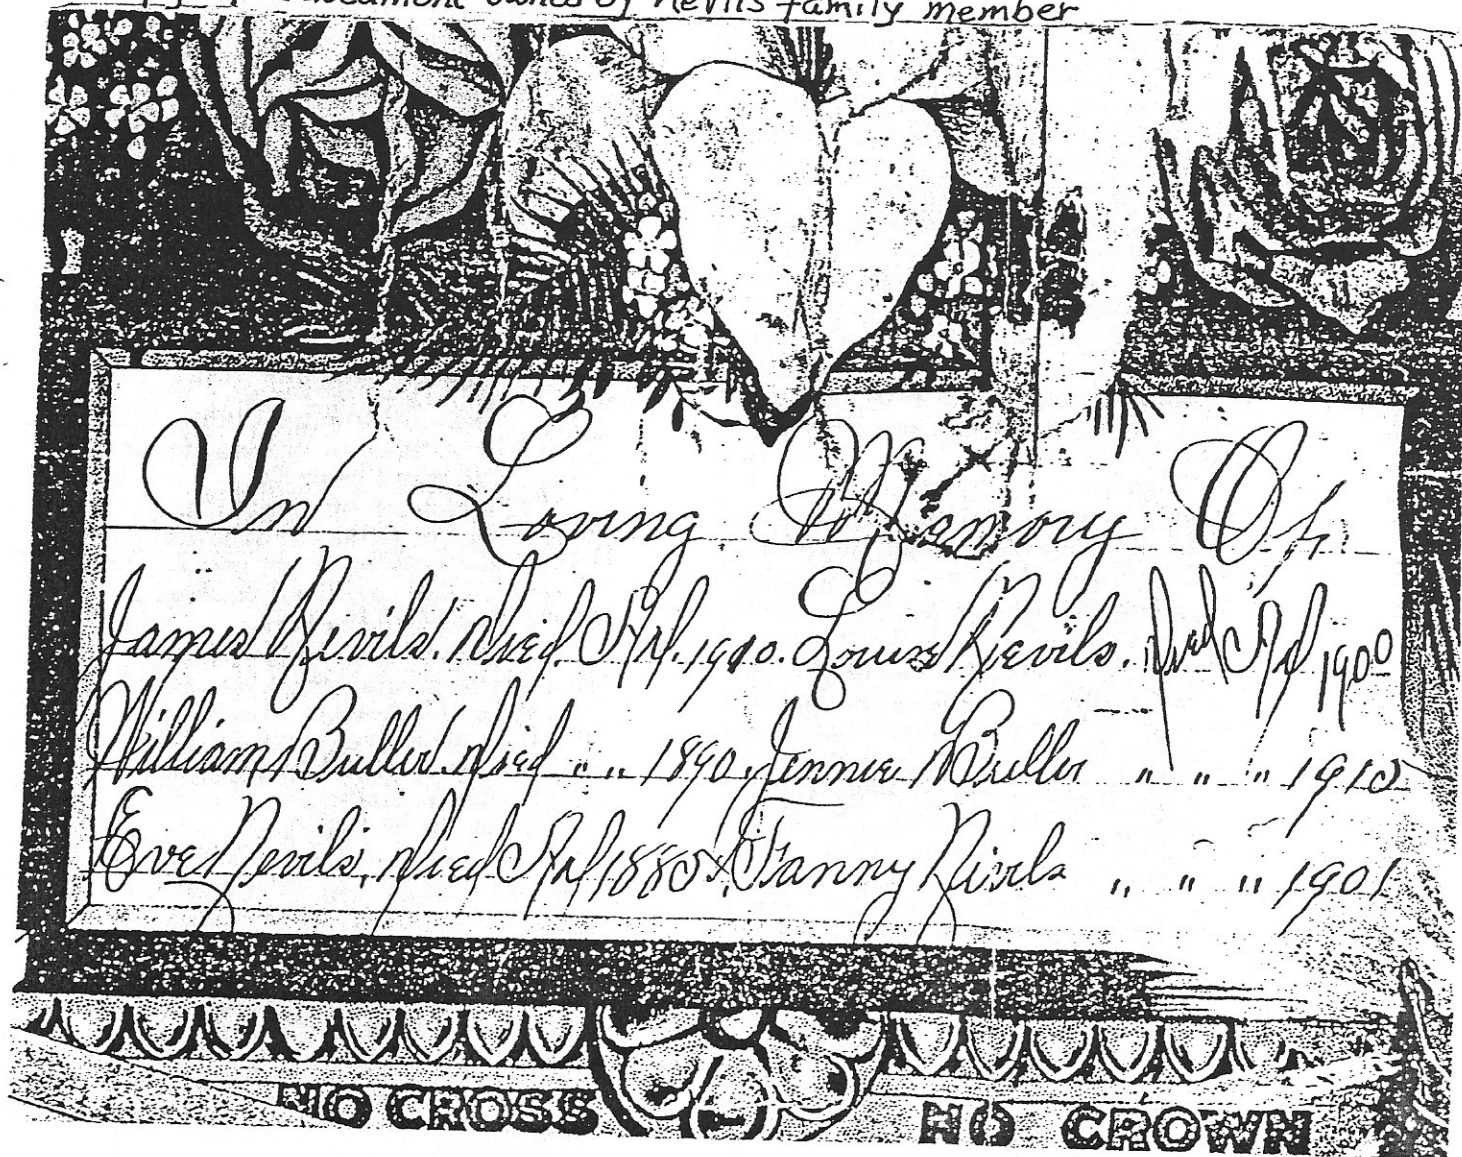 document owned by Nevils family member
In Loving Memory Of
James Nevils. Died. Ad. 1900. Louise Nevils. Died Ad 1900
William Butler. Died " " 1890. Jennie Butler " " " 1910
Eve Nevils. Died Ad 1885. Fanny Nivils " " " 1901
NO CROSS NO CROWN